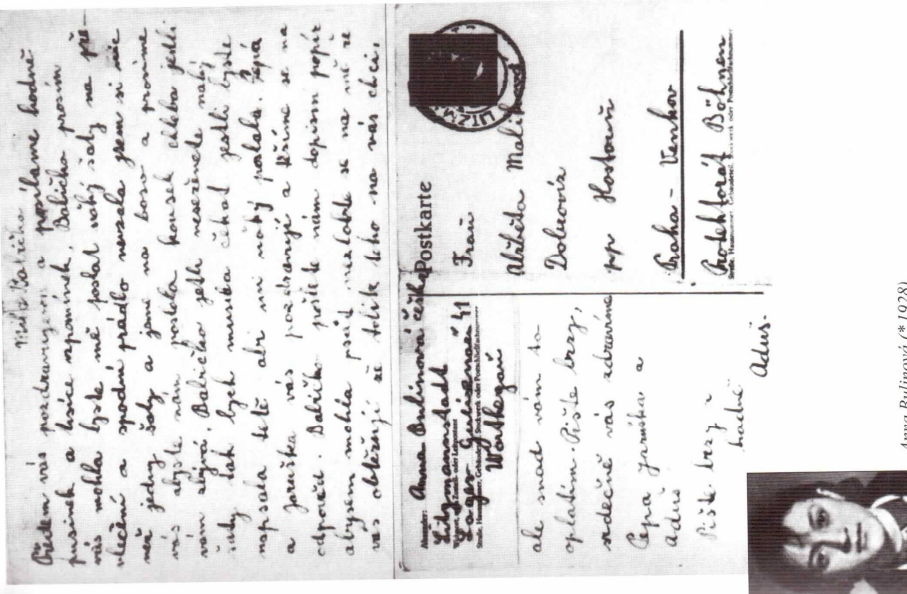 Milá Babičko
Předem vás pozdravujem a posíláme hodně
pusinek a hsice spominek. Babičko prosím
vás mohla byste mě poslat náký šaty na pře-
vlečení a spodní prádlo nevzala jsem si nic
než jedny šaty a jsme na boso a prosíme
vás abyste nám poslala kousek chleba jestli
vám zbývá. Babičko jestli neseženete nahý
šaty tak bych musila čekat jestli byste
napsala tetě abi mi nočky poslala. Čepá
a Jaruška vás pozdravují a těšíme se na
odpověď. Babičko pošlete nám dopisní papír
abysem mohla psát nezlobte se na mě že
vás obtěžuji že tolik toho na vás chci,
Absender: Anna Bulinová
Litzmannstadt
Lager Gneisenau 41
Warthegau
ale snad vám to
oplatím. Pište brzy,
srdečně vás zdravíme
Čepa Jaruška a
Aduš
Pište brzy
hodně
Aduš.
Postkarte
Frau
Alžběta
Dobrovíz
pp Hostouň
Praha - Venkov
Protektorát Böhmen
Anna Bulinová (*1928)